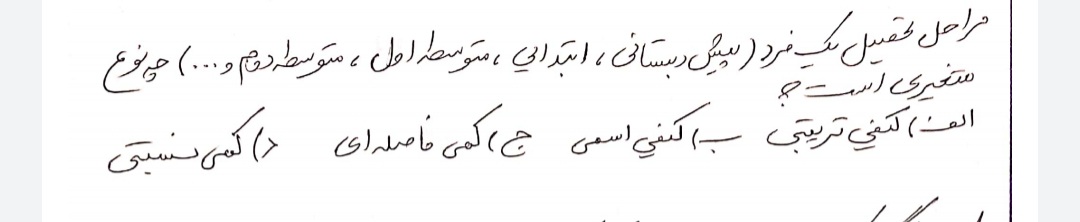 مراحل تحصیل یک فرد (پیش دبستانی ، ابتدایی ، متوسطه اول ، متوسطه دوم و ...) چه نوع
متغیری است؟
الف) کیفی ترتیبی ب) کیفی اسمی ج) کمی فاصله ای د) کمی نسبتی